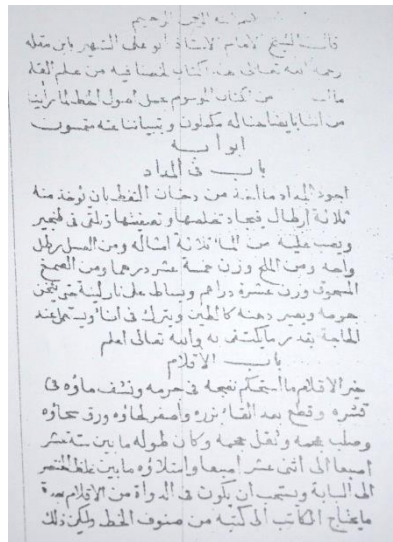 بسم الله الرحمن الرحيم
قال الشيخ الامام الاستاذ ابو على الشهير بابن مقله
رحمه الله تعالى هذا الكتاب لخصنا فيه من علم القلم
من كتاب الموسوم عمل اصول الخط لما راينا
من
ابوابه
باب فى المداد
اجود المداد ما اتخذ من دخان النفط بان يوخذ منه
ثلاثة ارطال فيجاد نخلها وتصفيتها ثم تلقى فى طنجير
ويصب عليه من الماء ثلاثة امثاله ومن العسل رطل
واحد ومن الملح وزن خمسة عشر درهما ومن الصمغ
المسحوق وزن عشرة دراهم ويساط على نار لينة حتى يثخن
جرمه ويصير دهنه كالطين ويترك فى اناء ويستعمل عند
الحاجة بقدر ما يكتفى به والله تعالى اعلم
باب الاقلام
خير الاقلام ما استحكم نضجه فى جرمه ونشف ماؤه فى
قشره وقطع بعد القاء بزره واصفر لحاؤه ورق شحاؤه
وصلب شحمه وثقل حجمه وكان طوله ما بين ستة عشر
اصبعا الى اثنى عشر اصبعا وامتلاؤه ما بين غلظ الخنصر
الى السبابة ويستحب ان يكون فى الدواة من الاقلام بعدة
ما يحتاج الكاتب الى كتبه من صنوف الخط وليكن ذلك